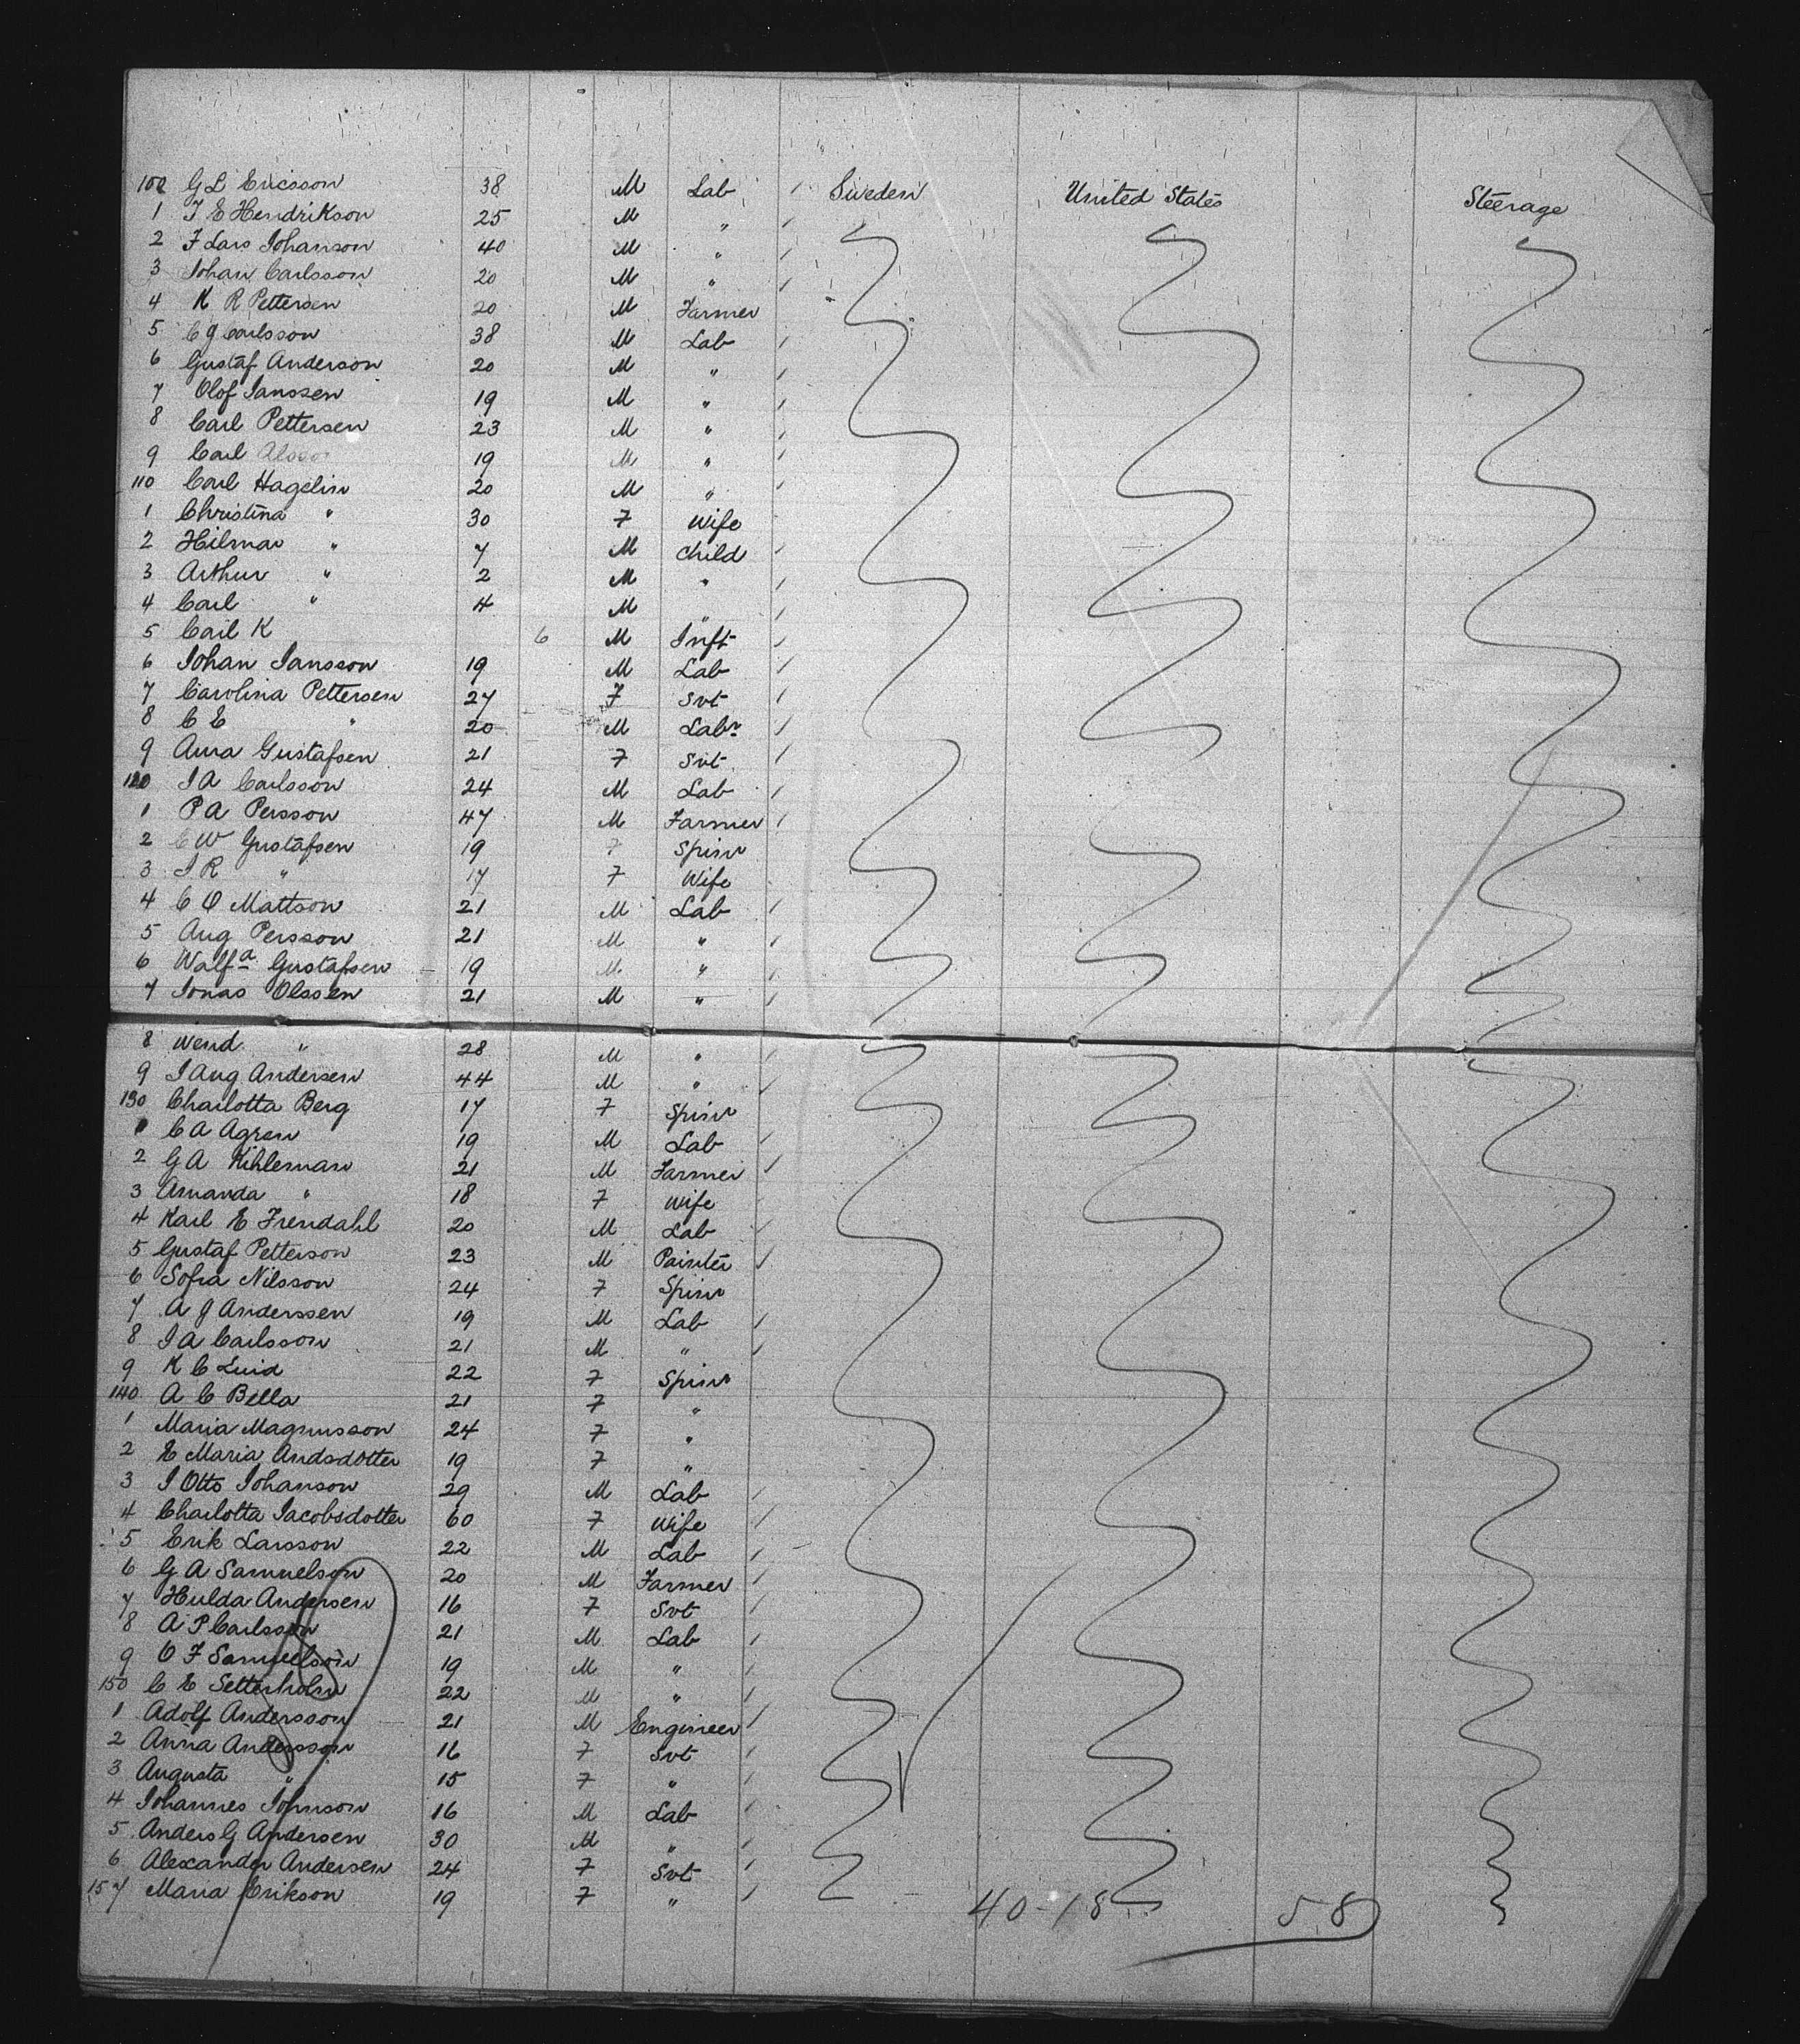 100 G L Ericsson 38 M Lab Sweden United States Steerage
1 J E Hendrikson 25 M "
2 F Lars Johanson 40 M "
3 Johan Carlsson 20 M "
4 K R Pettersen 20 M Farmer
5 C J Carlsson 38 M Lab
6 Gustaf Anderson 20 M "
7 Olof Janssen 19 M "
8 Carl Pettersen 23 M "
9 Carl 19 M "
110 Carl Hagelin 20 M "
1 Christina " 30 F Wife
2 Hilmar " 7 M Child
3 Arthur " 2 M "
4 Carl " 4 M "
5 Carl K 6 M Inft
6 Johan Jansson 19 M Lab
7 Carolina Pettersen 27 F Svt
8 C E " 20 M Labr
9 Anna Gustafsen 21 F Svt
120 J A Carlsson 24 M Lab
1 P A Persson 47 M Farmer
2 C W Gustafsen 19 F Spinr
3 J R " 17 F Wife
4 C O Mattson 21 M Lab
5 Aug Persson 21 M "
6 Walfa Gustafsen 19 M "
7 Jonas Olssen 21 M "
8 Wend " 28 M "
9 J Aug Andersen 44 M "
130 Charlotta Berg 17 F Spinr
1 C A Agren 19 M Lab
2 G A Kihleman 21 M Farmer
3 Amanda " 18 F Wife
4 Karl E Frendahl 20 M Lab
5 Gustaf Petterson 23 M Painter
6 Sofia Nilsson 24 F Spinr
7 A J Anderssen 19 M Lab
8 J A Carlsson 21 M "
9 K C Luid 22 F Spinr
140 A C Bella 21 F "
1 Maria Magnusson 24 F "
2 E Maria Andsdotter 19 F "
3 J Otto Johanson 29 M Lab
4 Charlotta Jacobsdotter 60 F Wife
5 Erik Larsson 22 M Lab
6 G A Samuelson 20 M Farmer
7 Hulda Andersen 16 F Svt
8 A P Carlsson 21 M Lab
9 O F Samuelson 19 M "
150 C E Setterholm 22 M "
1 Adolf Andersson 21 M Engineer
2 Anna Andersson 16 F Svt
3 Augusta " 15 F "
4 Johannes Johnson 16 M Lab
5 Anders G Andersen 30 M "
6 Alexander Andersen 24 F Svt
157 Maria Erikson 19 F "
40-18 58